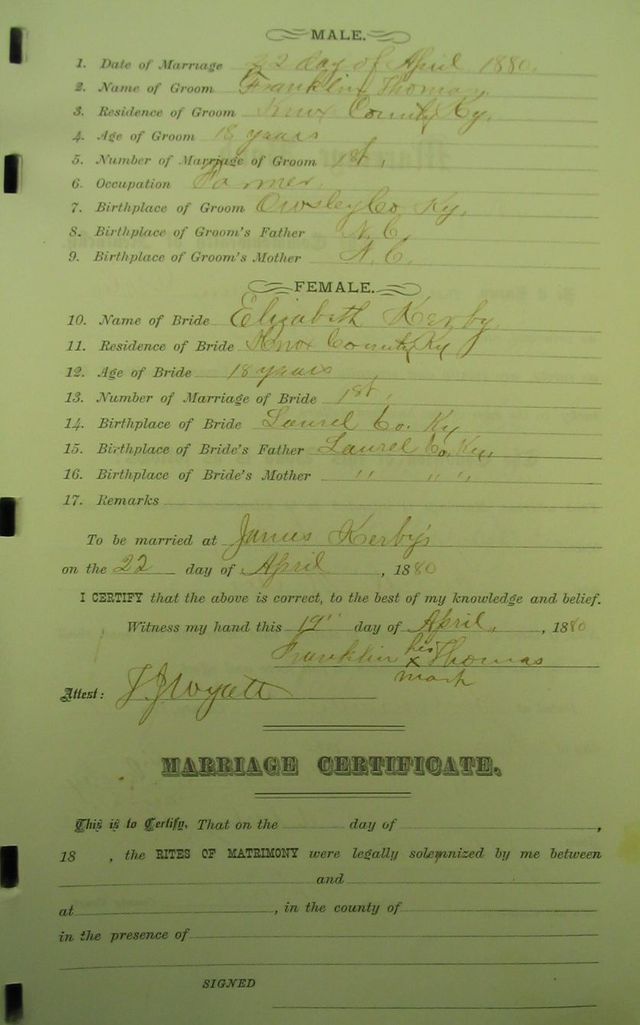 MALE.
1. Date of Marriage 22 day of April 1880.
2. Name of Groom Franklin Thomas
3. Residence of Groom Knox County Ky.
4. Age of Groom 18 years
5. Number of Marriage of Groom 1st.
6. Occupation Farmer
7. Birthplace of Groom Owsley Co. Ky.
8. Birthplace of Groom's Father N. C.
9. Birthplace of Groom's Mother N. C.
FEMALE.
10. Name of Bride Elizabeth Kerby
11. Residence of Bride Knox County Ky
12. Age of Bride 18 years
13. Number of Marriage of Bride 1st.
14. Birthplace of Bride Laurel Co. Ky
15. Birthplace of Bride's Father Laurel Co. Ky.
16. Birthplace of Bride's Mother " " "
17. Remarks
To be married at James Kerby's
on the 22 day of April, 1880
I CERTIFY that the above is correct, to the best of my knowledge and belief.
Witness my hand this 19" day of April, 1880
Franklin his x mark Thomas
Attest: J J Wyatt
MARRIAGE CERTIFICATE.
This is to Certify, That on the day of ,
18 , the RITES OF MATRIMONY were legally solemnized by me between
and
at , in the county of
in the presence of
SIGNED